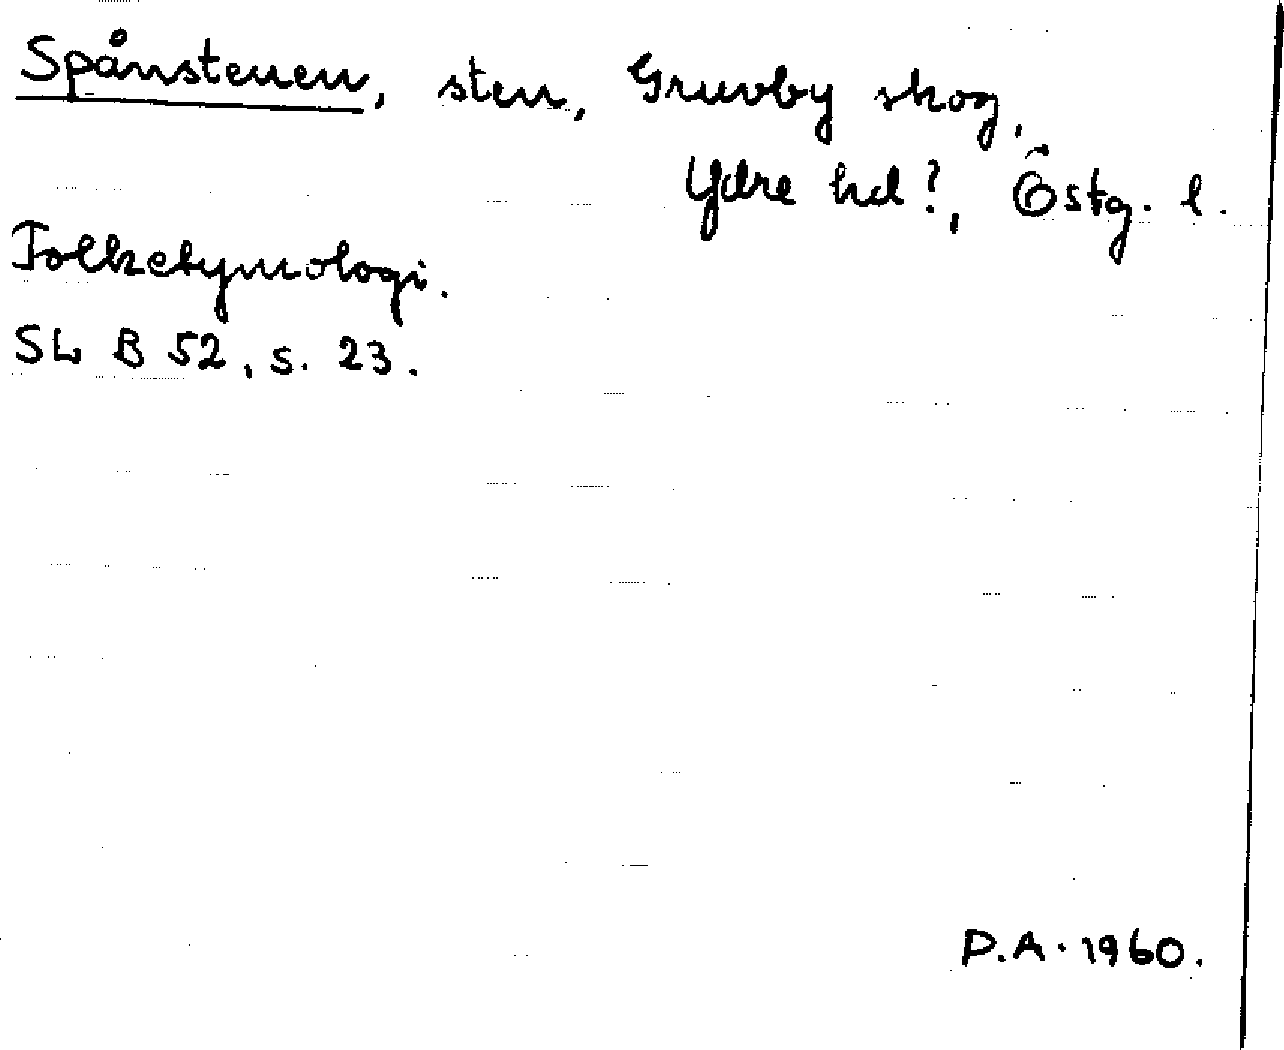 Spånstenen, sten, Gruvby skog,
Ydre hd?, Östg. l.
Folketymologi.
SL B 52, s. 23.
P.A. 1960.